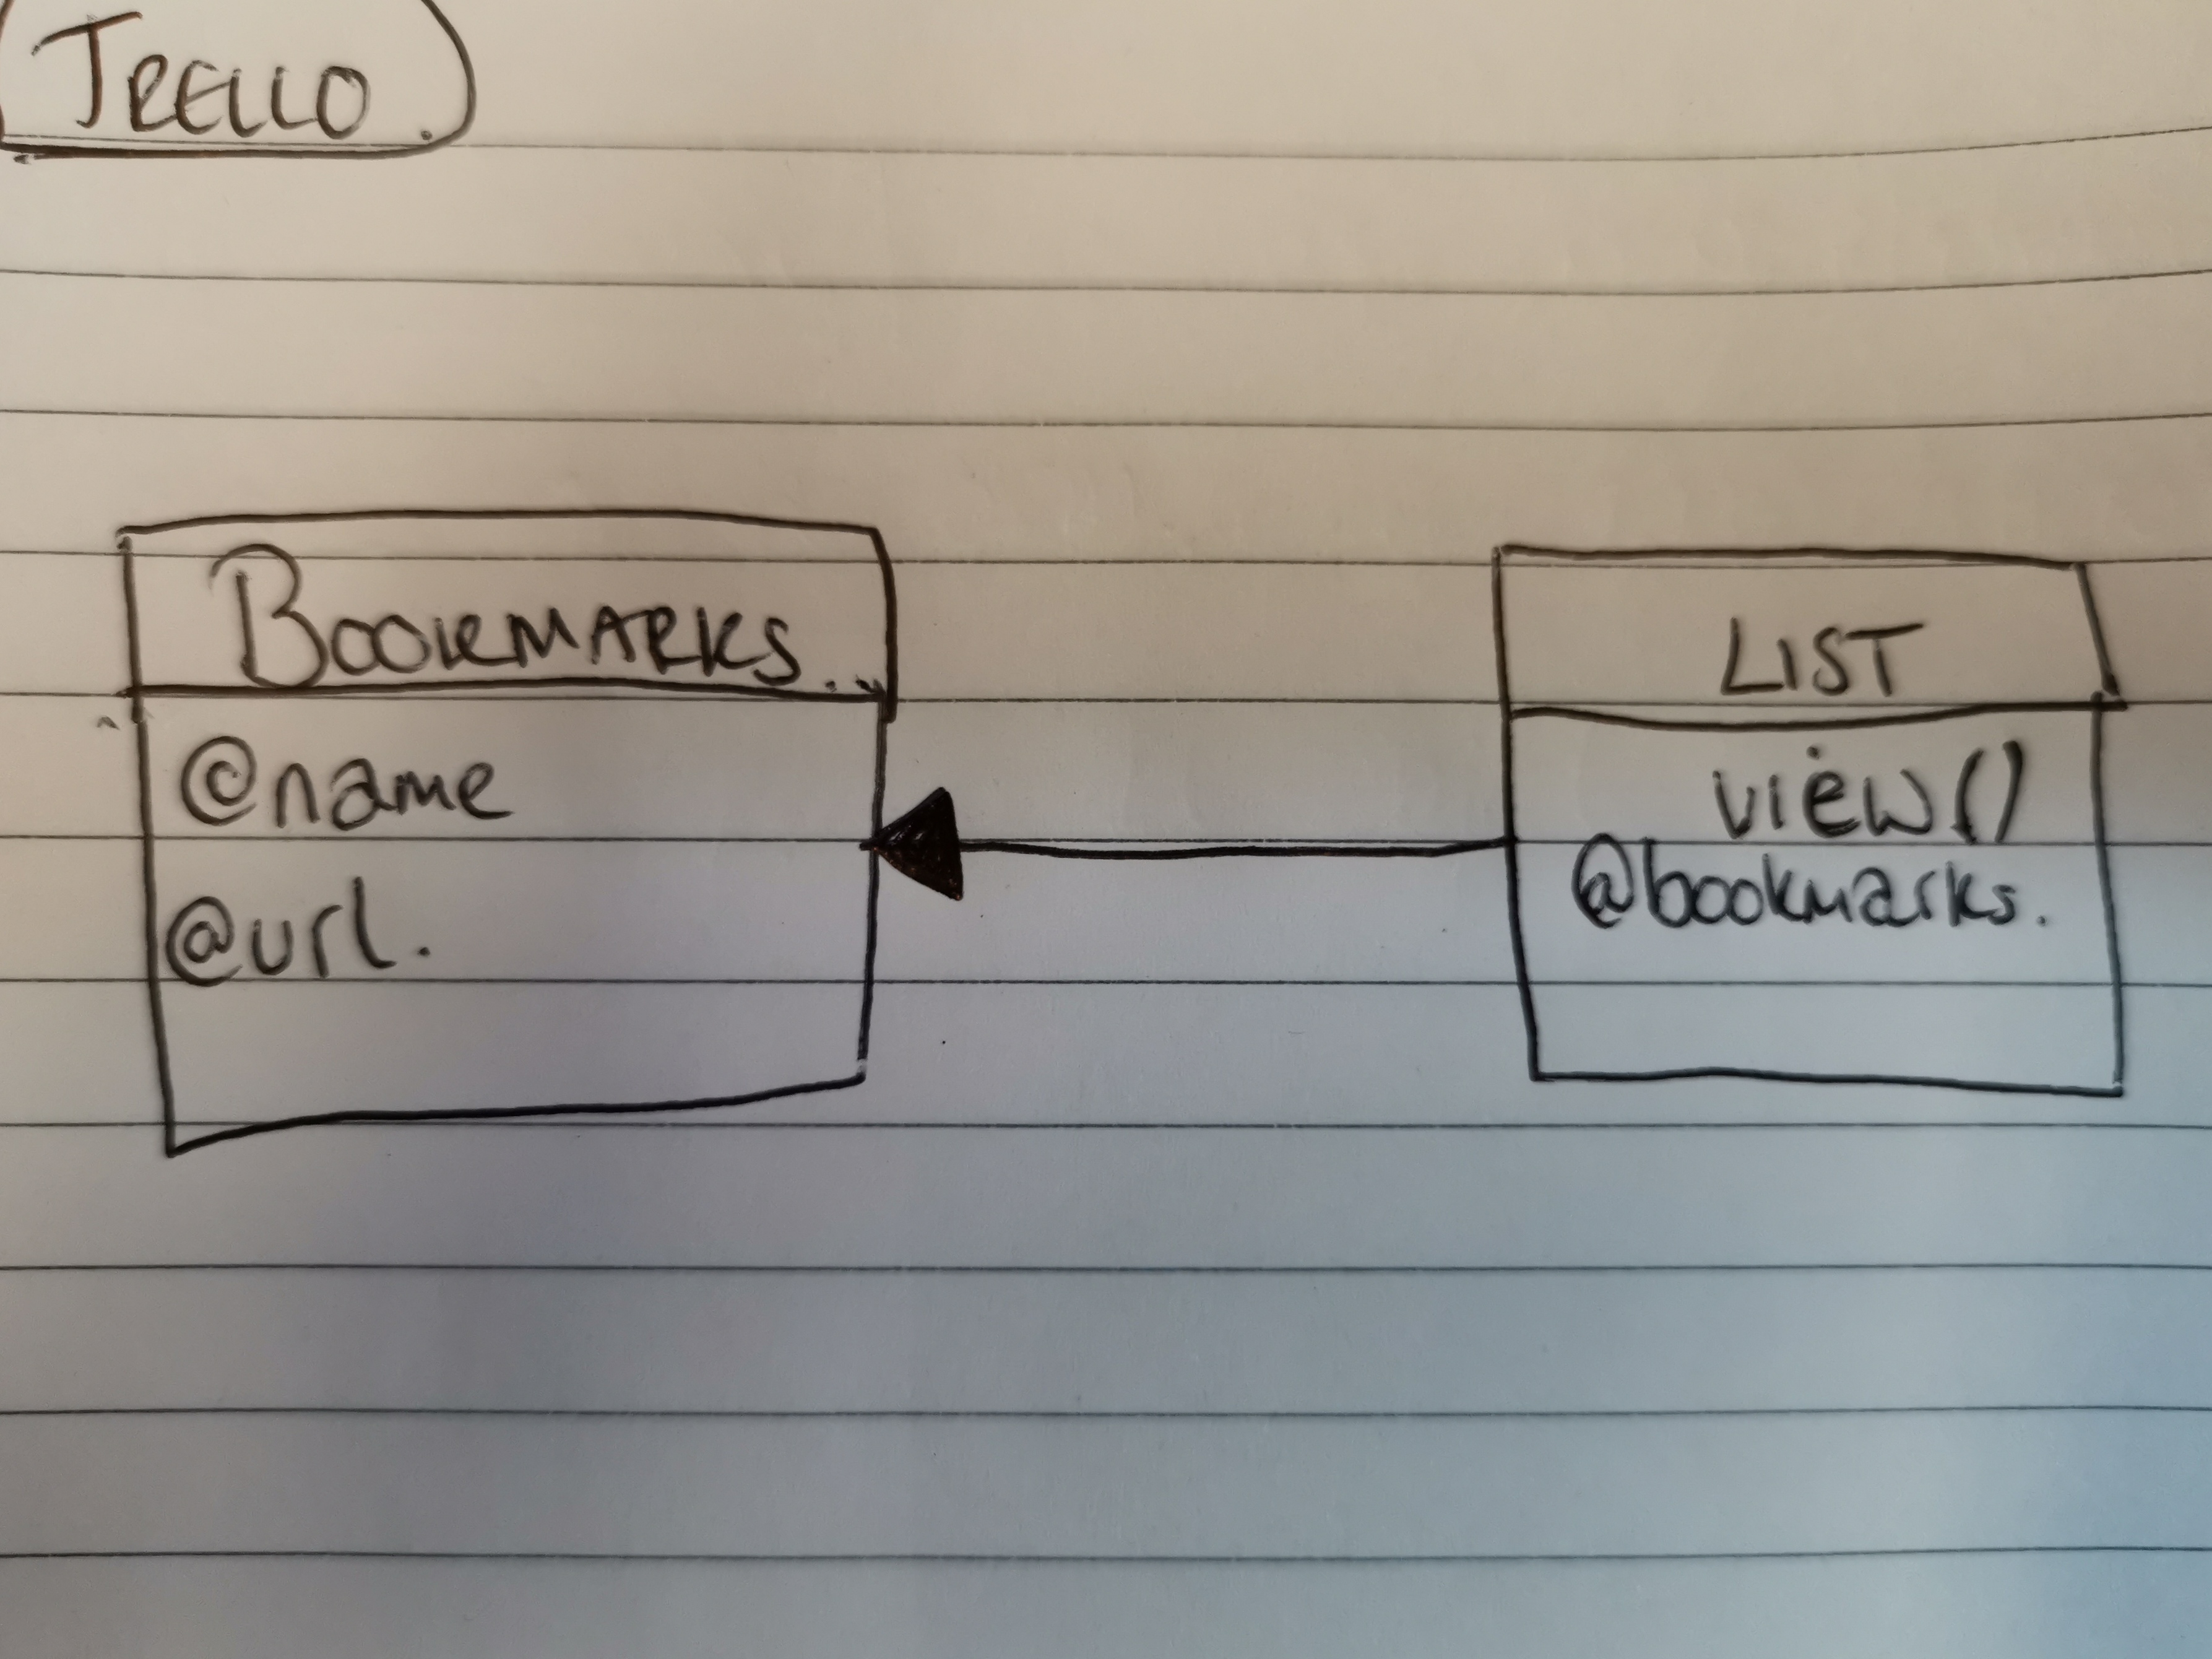 TRELLO.
BOOKMARKS.
@name
@url.
LIST
view()
@bookmarks.